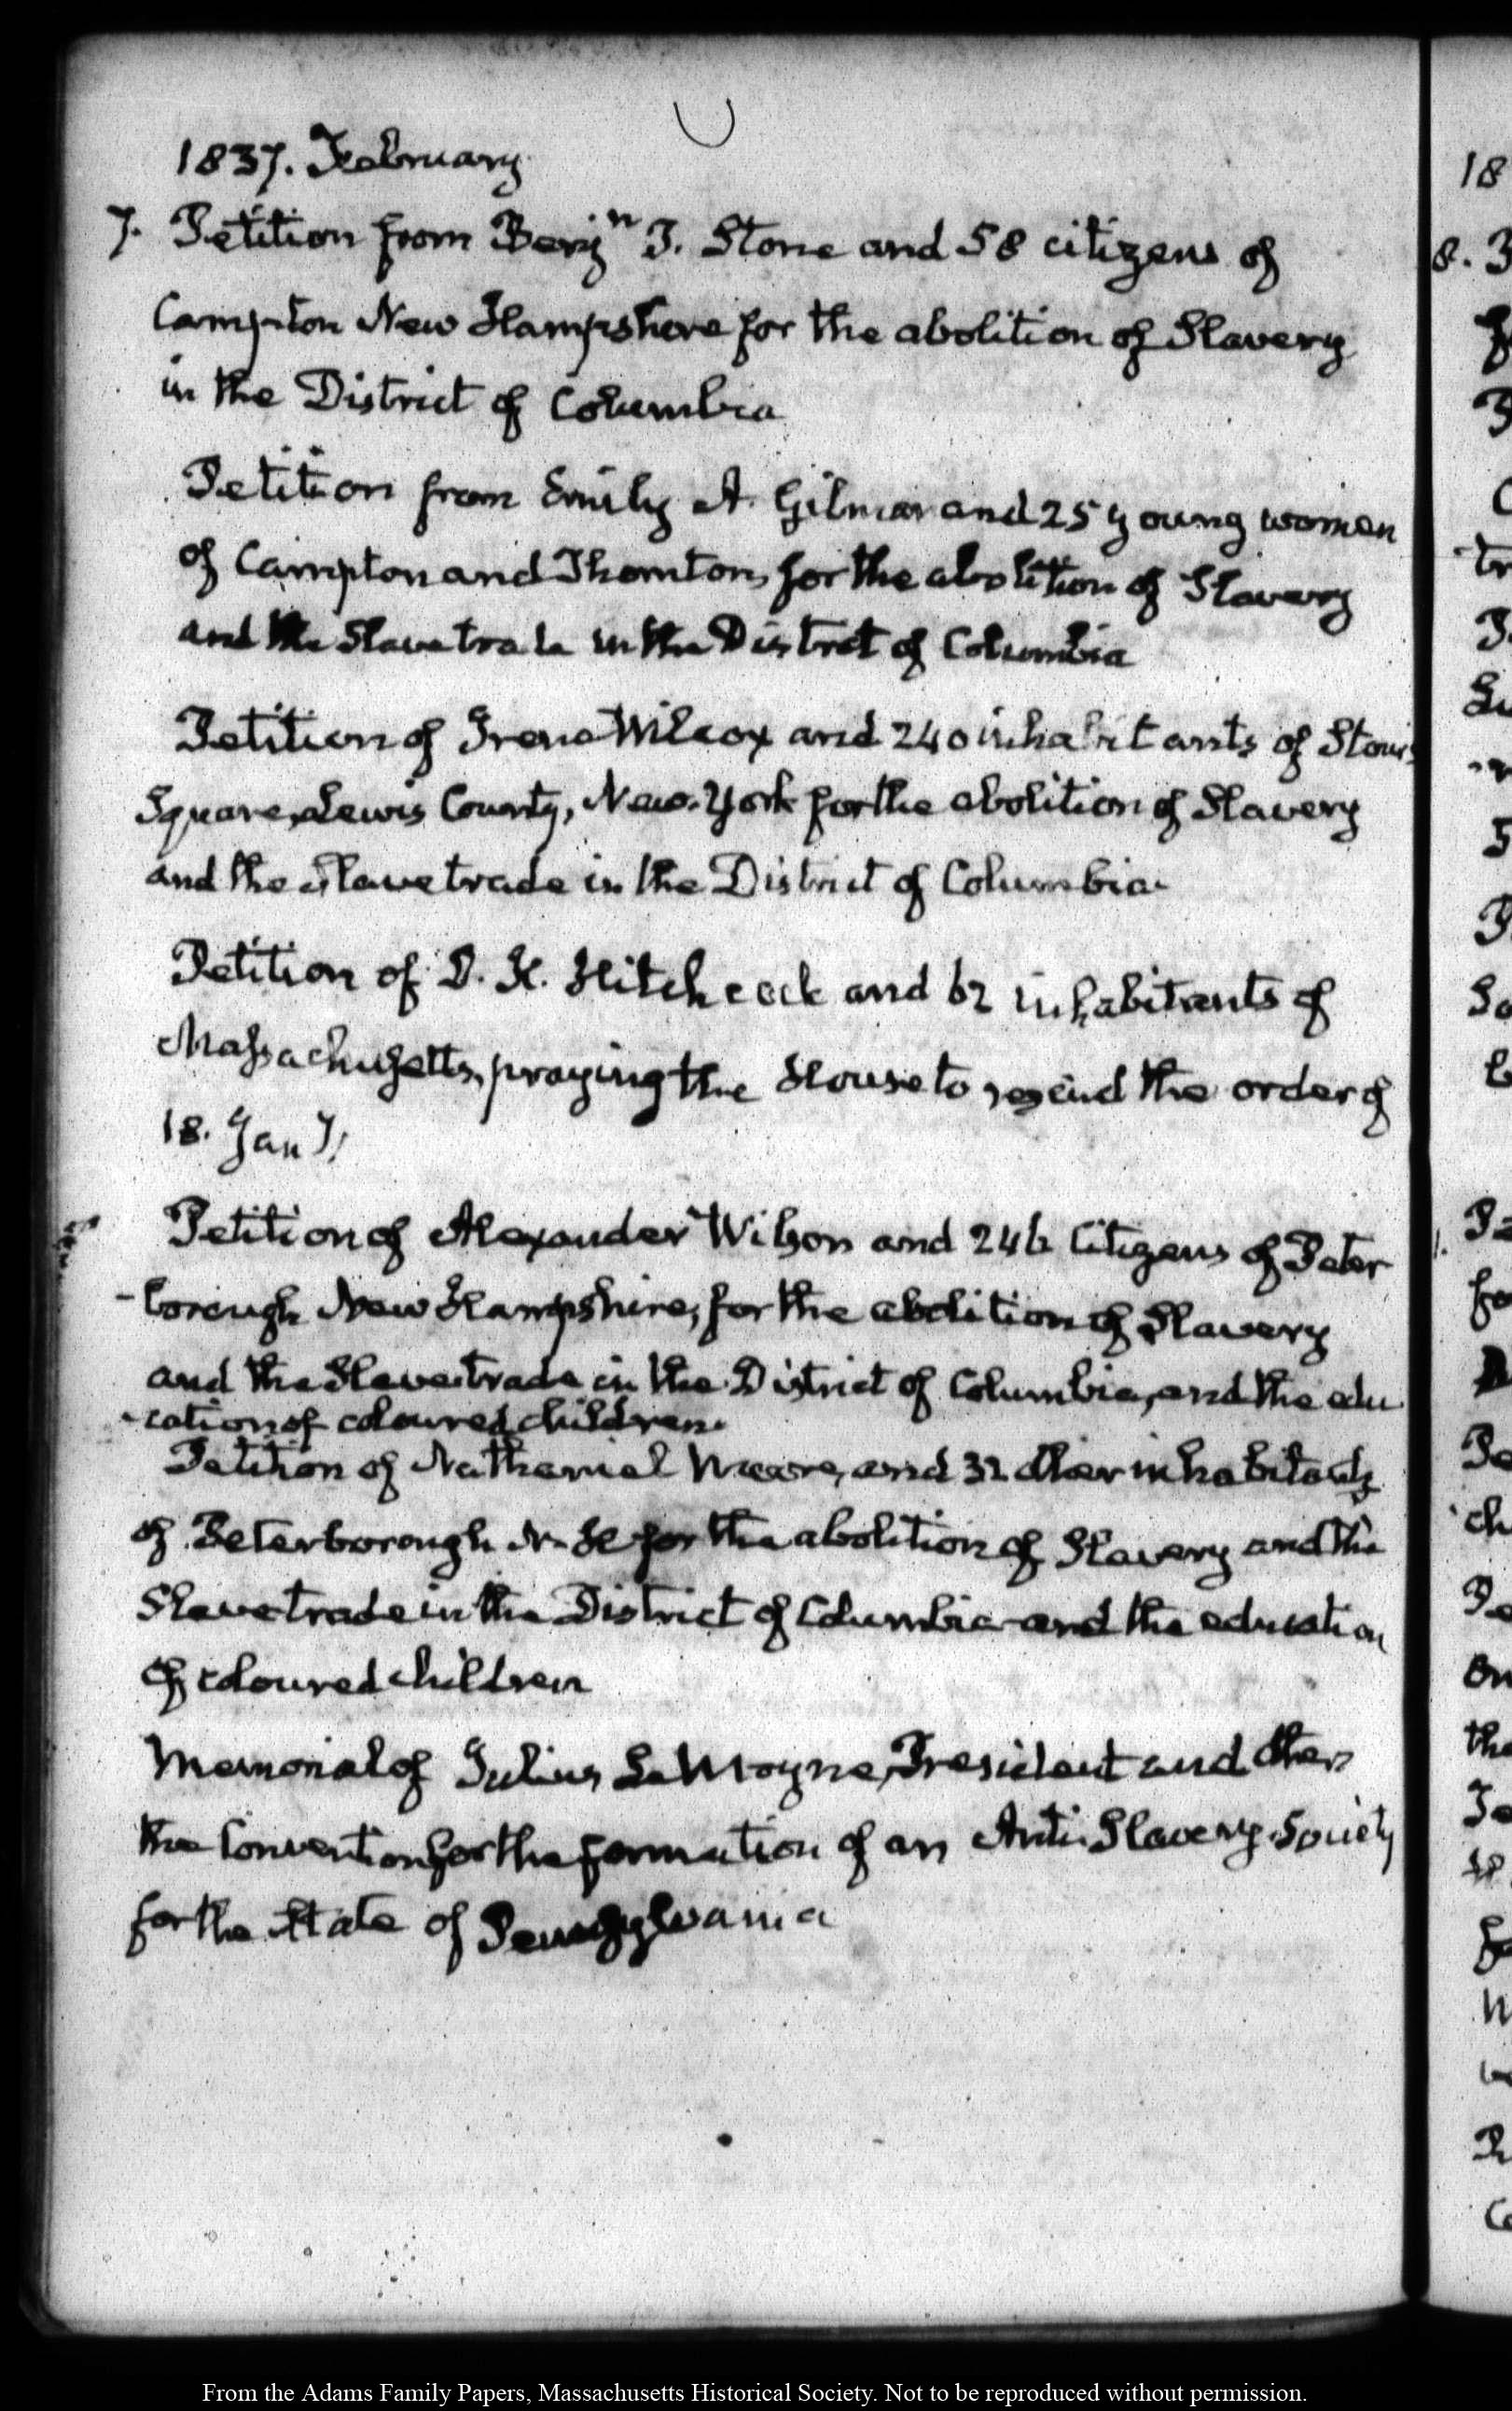 1837. February
7. Petition from Benjn. J. Stone and 58 citizens of
Campton New Hampshire for the abolition of Slavery
in the District of Columbia
Petition from Emily A. Gilman and 25 young women
of Campton and Thornton, for the abolition of Slavery
and the Slave trade in the District of Columbia
Petition of Irena Wilcox and 240 inhabitants of Stow's
Square, Lewis County, New-York for the abolition of Slavery
and the Slave trade in the District of Columbia
Petition of D. K. Hitchcock and 62 inhabitants of
Massachusetts, praying the House to rescind the order of
18. Jany.
Petition of Alexander Wilson and 246 Citizens of Peter
-borough New Hampshire, for the abolition of Slavery
and the Slave trade in the District of Columbia, and the edu
-cation of coloured children.
Petition of Nathaniel and 32 other inhabitants
of Peterborough N. H for the abolition of Slavery and the
Slave trade in the District of Columbia and the education
of coloured children
Memorial of Julius Le Moyne, President and others
the Convention for the formation of an Anti-Slavery Society
for the State of Pennsylvania
From the Adams Family Papers, Massachusetts Historical Society. Not to be reproduced without permission.